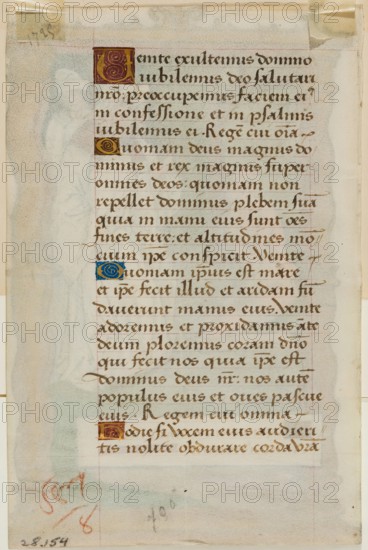 1725
Venite exultemus domino
iubilemus deo salutari
nro: preoccupemus faciem ei9
in confessione et in psalmis
iubilemus ei. Regē cui oīa ~
Quoniam deus magnus do
minus et rex magnus super
omnes deos: quoniam non
repellet dominus plebem suā
quia in manu eius sunt oēs
fines terre: et altitudines mō
cium ipe conspicit Venite ~
Quoniam ipsius est mare
et ipe fecit illud et aridam fū
dauerunt manus eius. Venite
adoremus et procidamus āte
deum ploremus coram dno
qui fecit nos quia ipe est
dominus deus nr: nos autē
populus eius et oues pascue
eius. Regem cui omnia ~
Hodie si vocem eius audieri
tis nolite obdurare corda vrā
8
28.154
PHOTO12